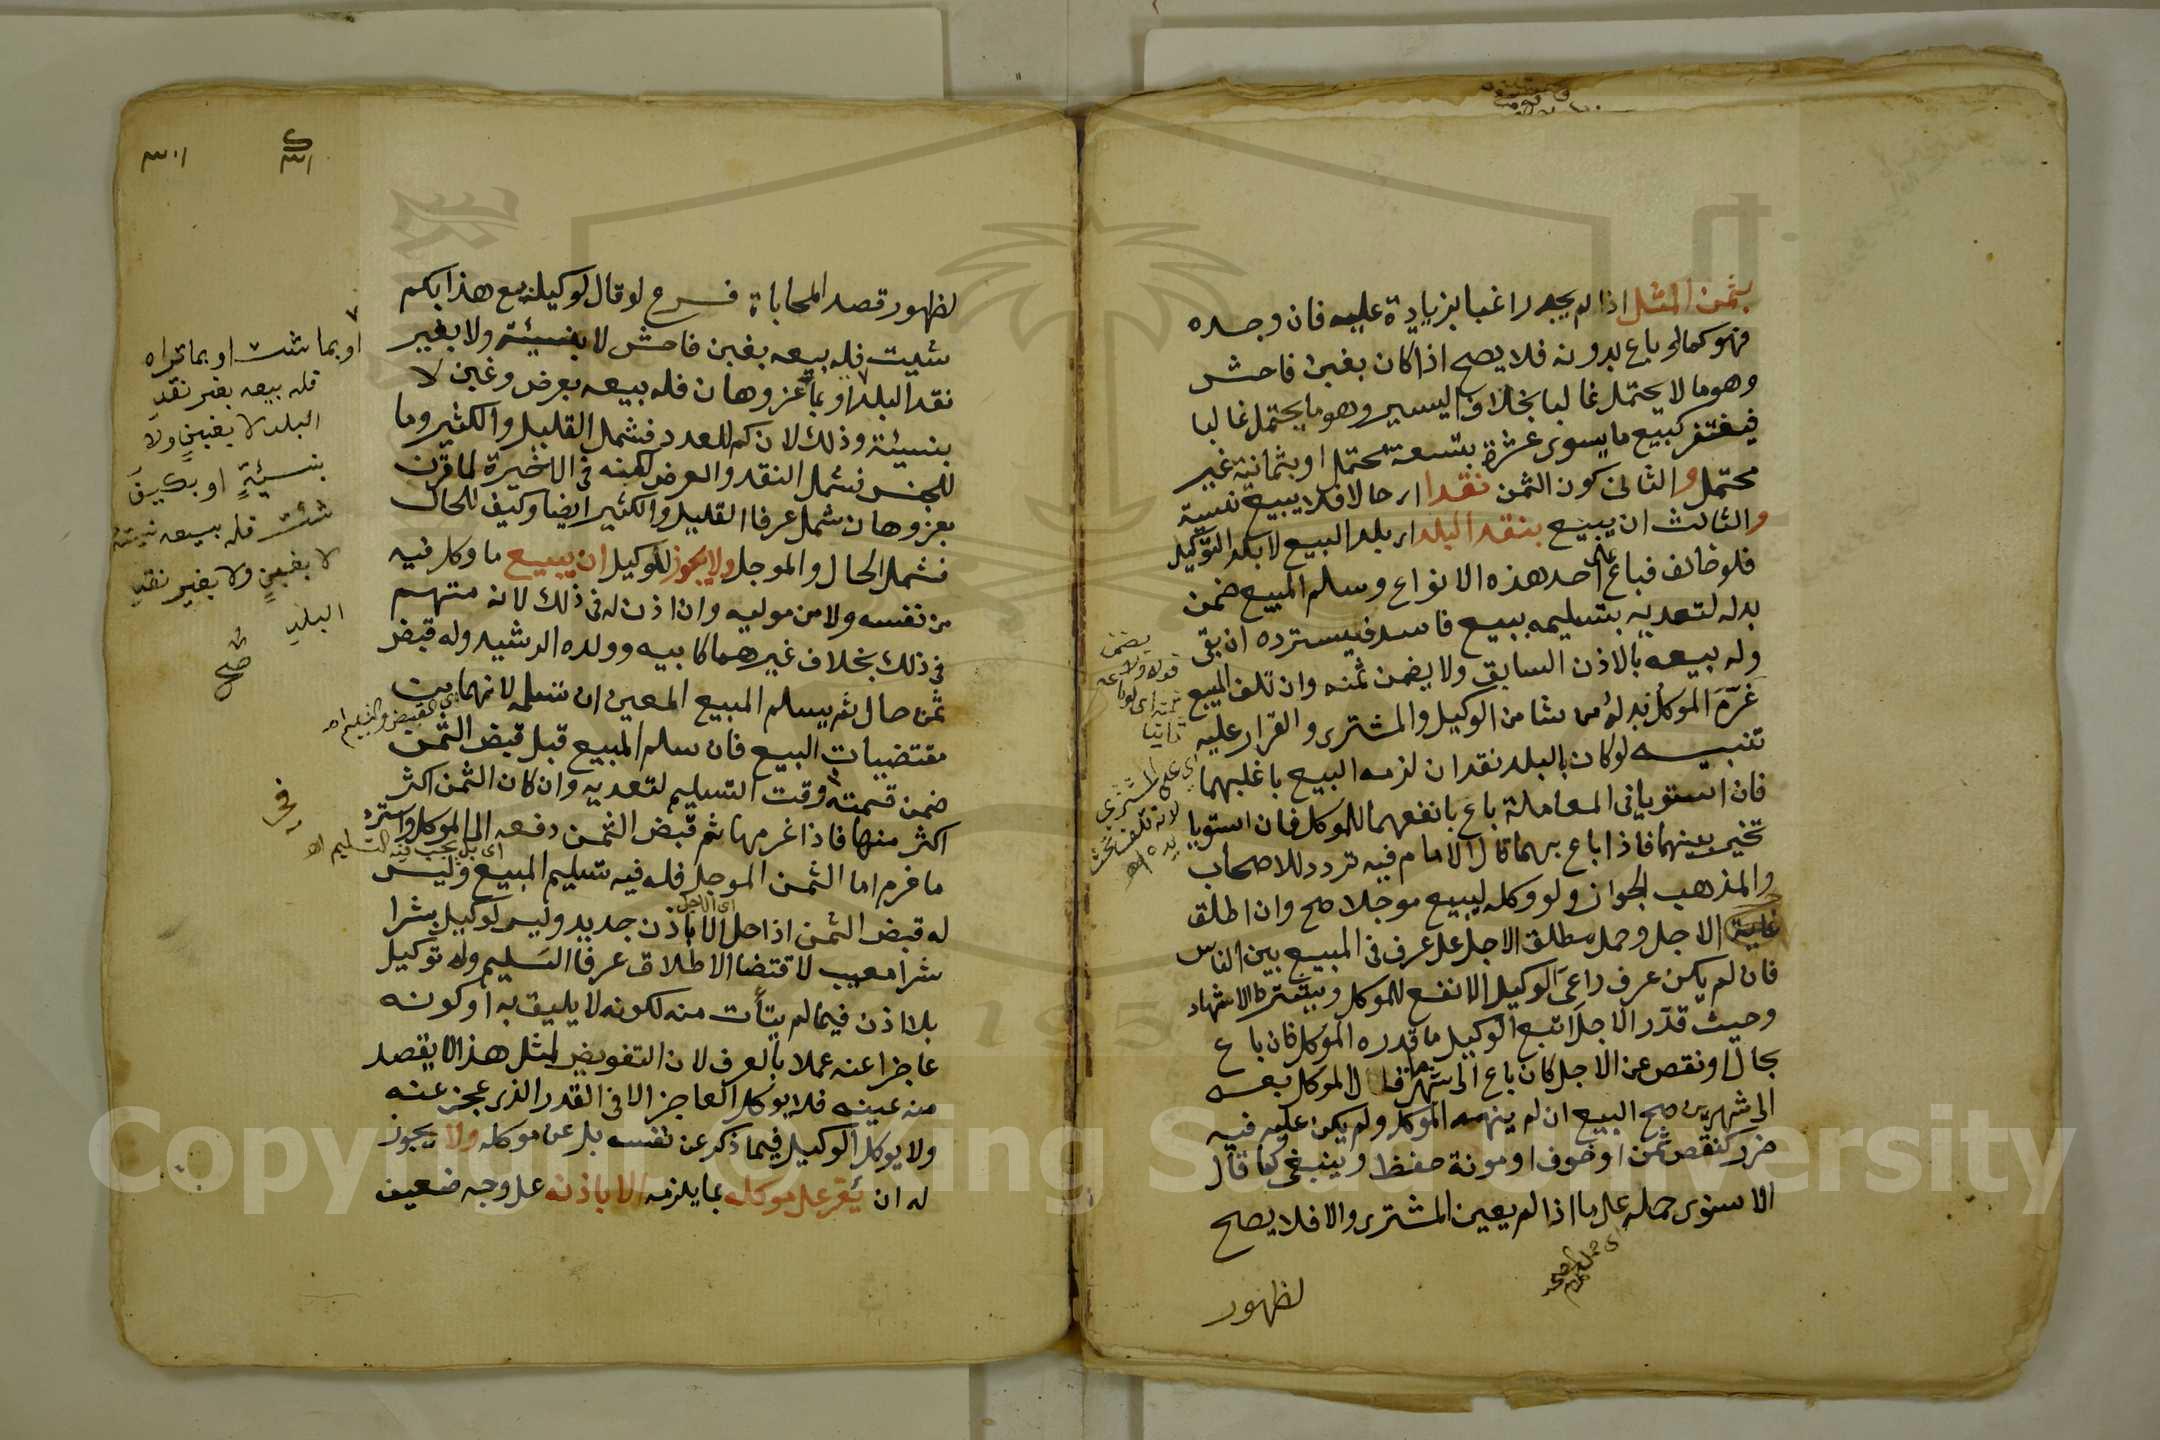 بثمن المثل اذا لم يجد راغبا بزيادة عليه فان وجده
فهو كما لو باع بدونه فلا يصح اذا كان بغبن فاحش
وهو ما لا يحتمل غالبا بخلاف اليسير وهو ما يحتمل غالبا
فيغتفر كبيع ما يسوى عشرة بتسعة محتمل او بثمانية غير
محتمل والثانى كون الثمن نقدا اى حالا فلا يبيع نسية
والثالث ان يبيع بنقد البلد اى بلد البيع لا بلد التوكيل
فلو خالف فباع على احد هذه الانواع وسلم المبيع ضمن
بدله لتعديه بتسليمه ببيع فاسد فيسترده ان بقى
وله بيعه بالاذن السابق ولا يضمن ثمنه وان تلف المبيع
غرم الموكل بدله من شا من الوكيل والمشترى والقرار عليه
تنبيه لو كان بالبلد نقدان لزمه البيع باغلبهما
فان استويا فى المعاملة باع بانفعهما للموكل فان استويا
تخير بينهما فاذا باع بهما قال الامام فيه تردد للاصحاب
والمذهب الجواز ولو وكله ليبيع موجلا صح وان اطلق
الاجل وحمل مطلق الاجل على عرف فى المبيع بين الناس
فان لم يكن عرف راعى الوكيل الانفع للموكل ويشترط الاشهاد
وحيث قدر الاجل اتبع الوكيل ما قدره الموكل فان باع
بحال او نقص عن الاجل كان باع الى شهر ما قال الموكل بعه
الى شهرين صح البيع ان لم ينهه الموكل ولم يكن عليه فيه
ضرر كنقص ثمن او خوف او مونة حفظ وينبغى كما قال
الاسنوى حمله على ما اذا لم يعين المشترى والا فلا يصح
لظهور
يضمن
قوله ولا
ثمنه اى
ثانيا
اى على المشترى
لانه تلف تحت
يده اهـ
٣٠١
لظهور قصد المحاباة فرع لو قال لوكيله بع هذا بكم
شيت فله بيعه بغبن فاحش لا بنسيئة ولا بغير
نقد البلد او بما عز وهان فله بيعه بعرض وغبن لا
بنسيئة وذلك لان كم للعدد فشمل القليل والكثير وما
للجنس فشمل النقد والعرض لكنه فى الاخيرة لما قرن
بعز وهان شمل عرفا القليل والكثير ايضا وكيف للحال
فشمل الحال والموجل ولا يجوز للوكيل ان يبيع ما وكل فيه
من نفسه ولا من موليه وان اذن له فى ذلك لانه متهم
فى ذلك بخلاف غيرهما كابيه وولده الرشيد وله قبض
ثمن حال ثم يسلم المبيع المعين ان تسلمه لانهما من
مقتضيات البيع فان سلم المبيع قبل قبض الثمن
ضمن قيمته وقت التسليم لتعديه وان كان الثمن اكثر
اكثر منها فاذا غرمها ثم قبض الثمن دفعه الى الموكل واسترد
ما غرم اما الثمن الموجل فله فيه تسليم المبيع وليس
له قبض الثمن اذا حل الا باذن جديد وليس لوكيل بشرا
شرا معيب لاقتضا الاطلاق عرفا السليم وله توكيل
بلا اذن فيما لم يتأت منه لكونه لا يليق به او كونه
عاجزا عنه عملا بالعرف لان التفويض لمثل هذا لا يقصد
منه عينه فلا يوكل العاجز الا فى القدر الذى عجز عنه
ولا يوكل الوكيل فيما ذكر عن نفسه بل عن موكله ولا يجوز
له ان يقر على موكله بما يلزمه الا باذنه على وجه ضعيف
او بما شئت او بما تراه
فله بيعه بغير نقد
البلد لا بغبن ولا
بنسيئة او بكيف
شئت فله بيعه بنسيئة
لا بغبن ولا بغير نقد
البلد
صح
اى القبض والتسليم اهـ
اى بل يجب فيه التسليم اهـ
اى الاجل
Copyright © King Saud University
195